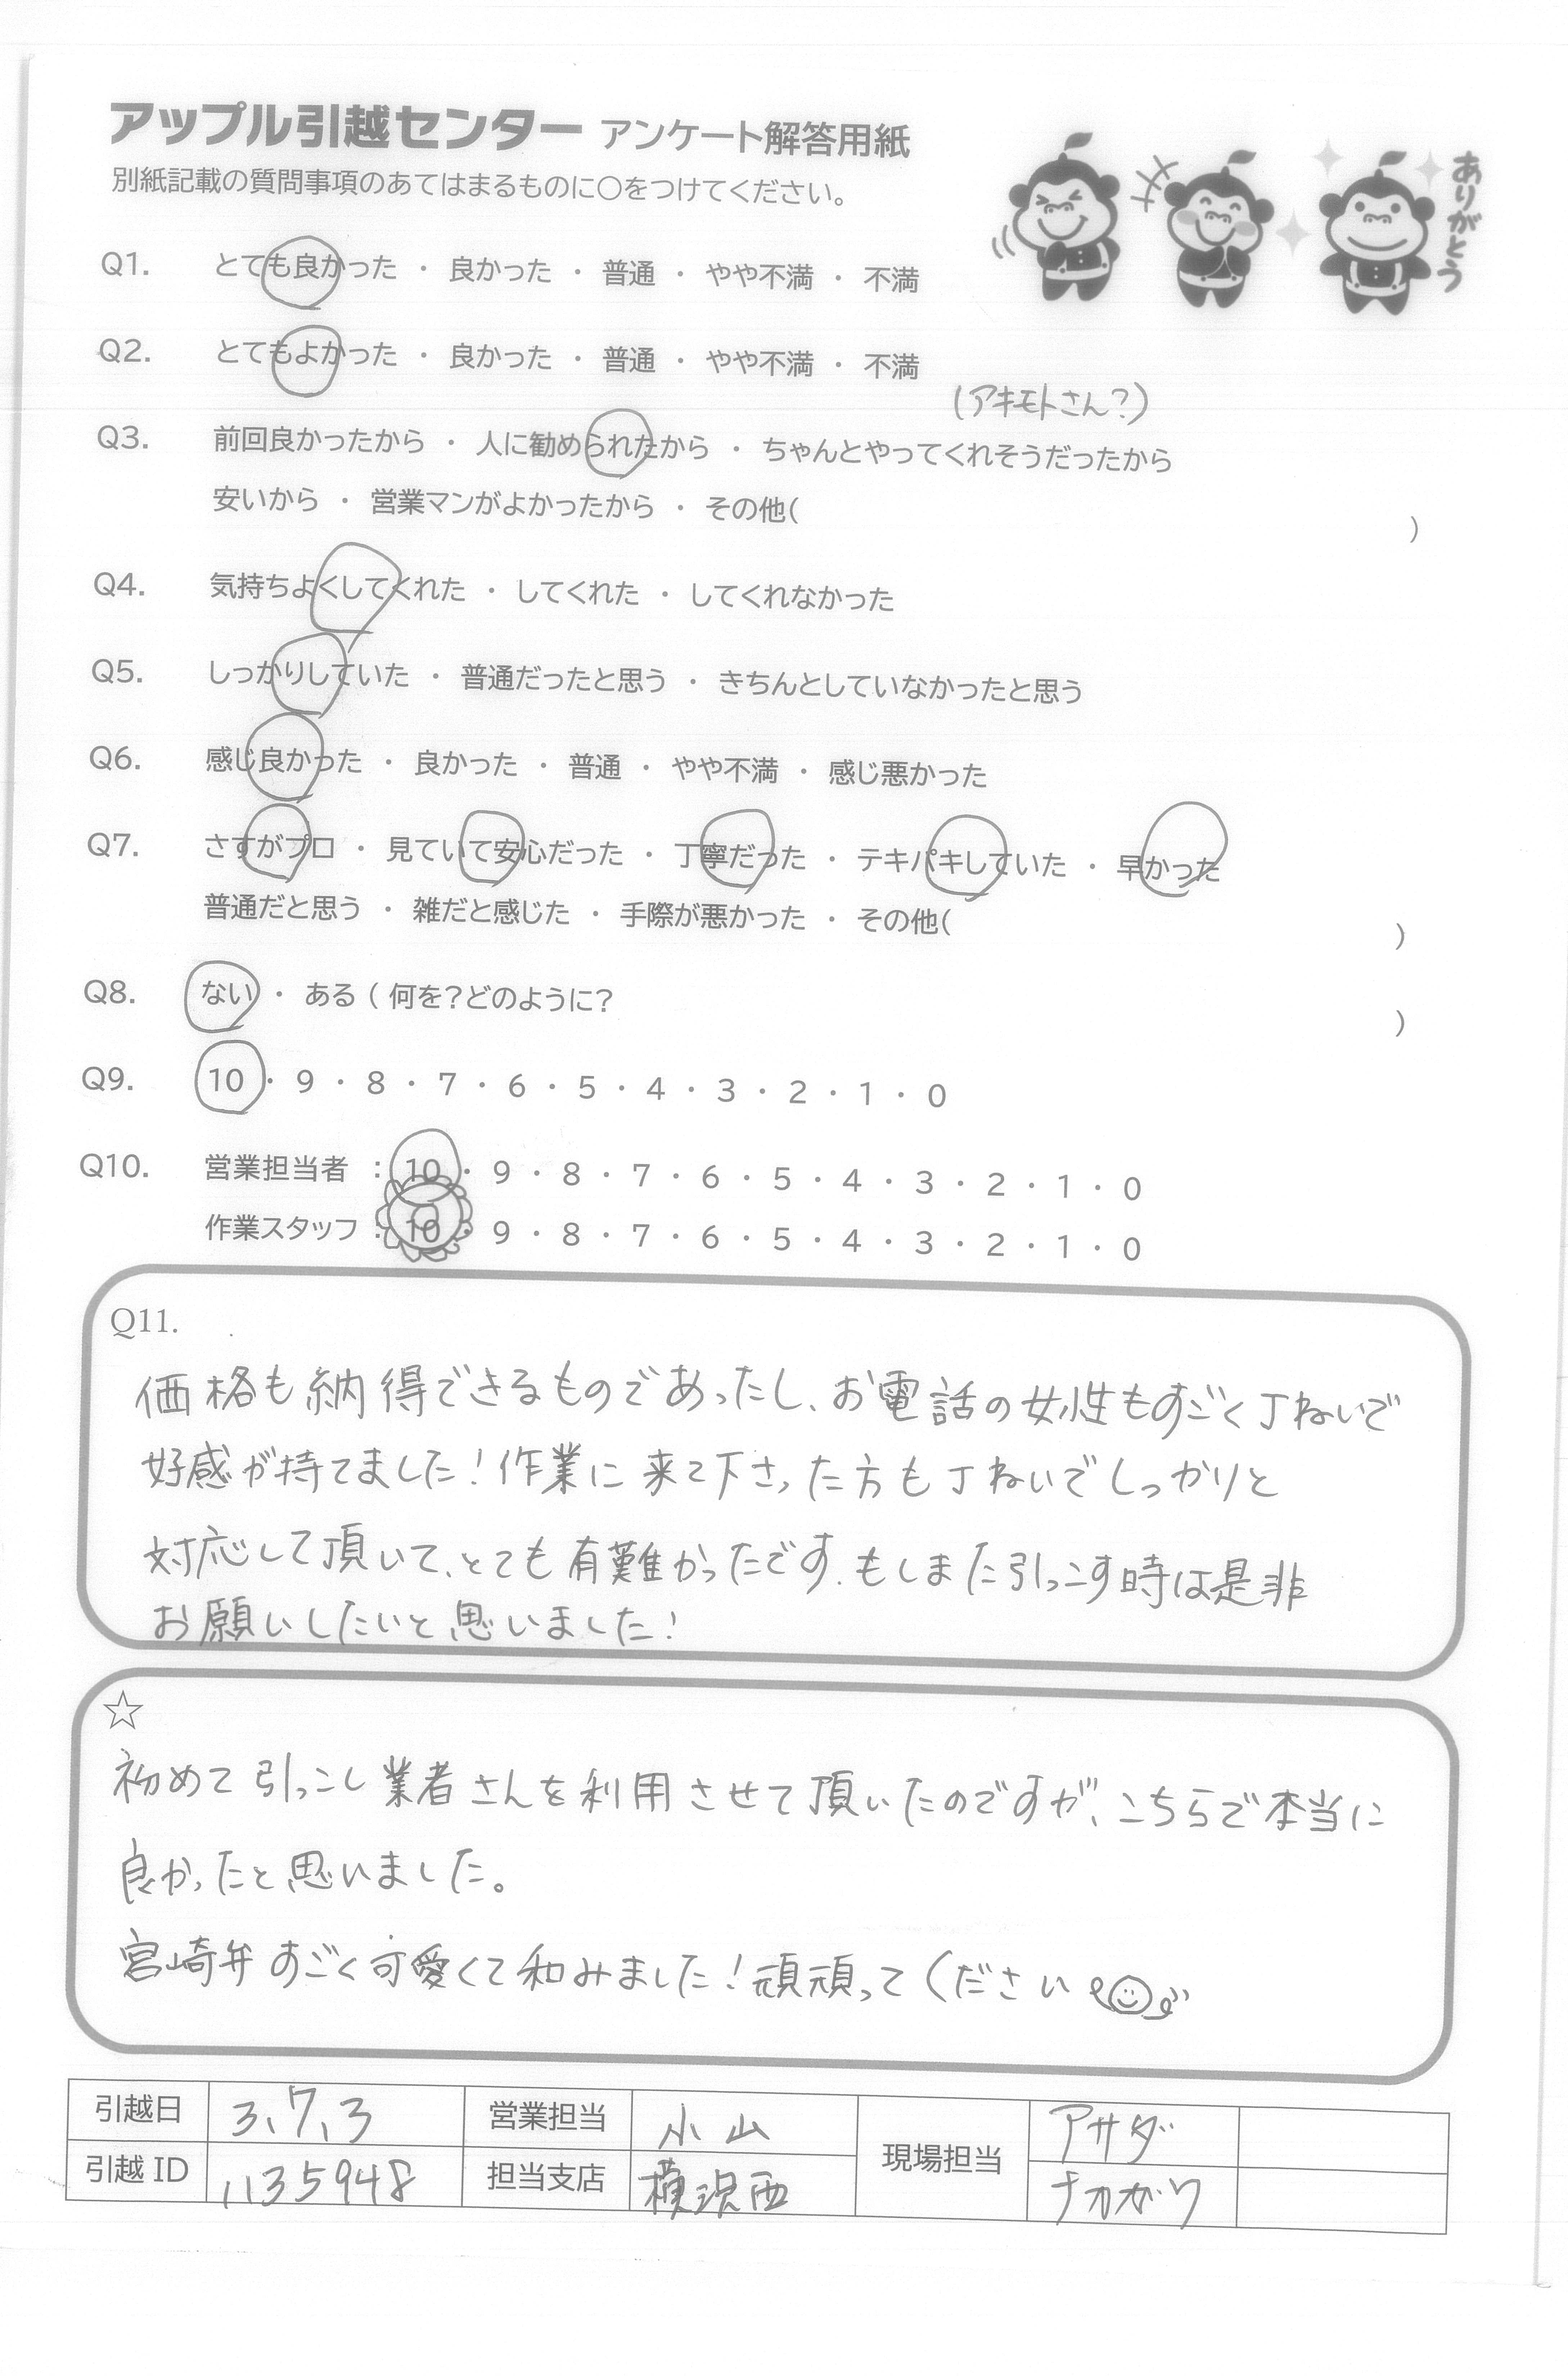 アップル引越センター アンケート解答用紙
別紙記載の質問事項のあてはまるものに〇をつけてください。
ありがとう
Q1. とても良かった ・ 良かった ・ 普通 ・ やや不満 ・ 不満
Q2. とてもよかった ・ 良かった ・ 普通 ・ やや不満 ・ 不満
(アキモトさん?)
Q3. 前回良かったから ・ 人に勧められたから ・ ちゃんとやってくれそうだったから
安いから ・ 営業マンがよかったから ・ その他( )
Q4. 気持ちよくしてくれた ・ してくれた ・ してくれなかった
Q5. しっかりしていた ・ 普通だったと思う ・ きちんとしていなかったと思う
Q6. 感じ良かった ・ 良かった ・ 普通 ・ やや不満 ・ 感じ悪かった
Q7. さすがプロ ・ 見ていて安心だった ・ 丁寧だった ・ テキパキしていた ・ 早かった
普通だと思う ・ 雑だと感じた ・ 手際が悪かった ・ その他( )
Q8. ない ・ ある ( 何を?どのように? )
Q9. 10 ・ 9 ・ 8 ・ 7 ・ 6 ・ 5 ・ 4 ・ 3 ・ 2 ・ 1 ・ 0
Q10. 営業担当者 : 10 ・ 9 ・ 8 ・ 7 ・ 6 ・ 5 ・ 4 ・ 3 ・ 2 ・ 1 ・ 0
作業スタッフ : 10 ・ 9 ・ 8 ・ 7 ・ 6 ・ 5 ・ 4 ・ 3 ・ 2 ・ 1 ・ 0
Q11.
価格も納得できるものであったし、お電話の女性もすごく丁ねいで
好感が持てました!作業に来て下さった方も丁ねいでしっかりと
対応して頂いて、とても有難かったです。もしまた引っこす時は是非
お願いしたいと思いました!
☆
初めて引っこし業者さんを利用させて頂いたのですが、こちらで本当に
良かったと思いました。
宮崎弁すごく可愛くて和みました!頑頑ってください
引越日 3.7.3 営業担当 小山 現場担当 アサダ
引越ID 1135948 担当支店 横浜西 ナカガワ